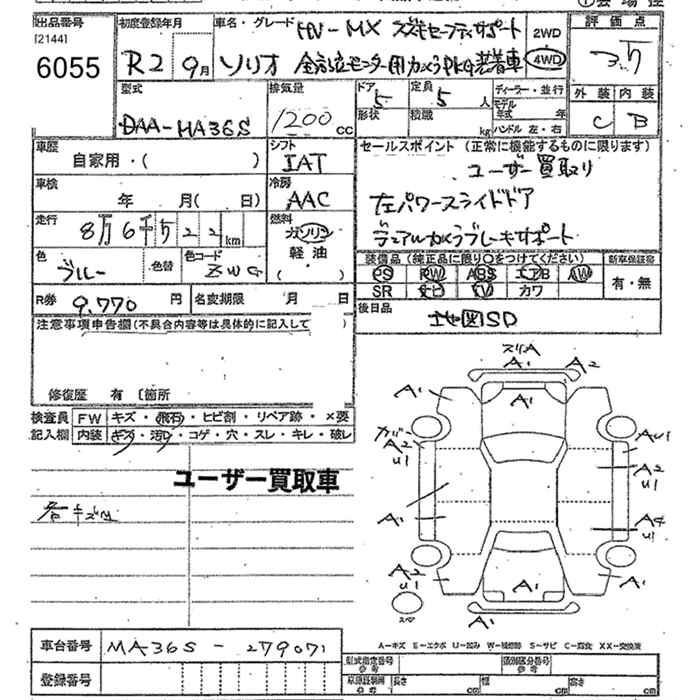 出品番号
[2144]
6055
初度登録年月
R2 9月
車名・グレード
HV-MX スズキセーフティサポート
ソリオ 全方位モニター用カメラPKG装着車
2WD
4WD
評価点
3.5
外装 内装
C B
型式
DAA-MA36S
排気量
1200 cc
ドア 5
形状
定員 5 人
積載 kg
ディーラー・並行
モデル年式 年
ハンドル 左・右
車歴
自家用・( )
シフト
IAT
セールスポイント (正常に機能するものに限ります)
ユーザー買取り
左パワースライドドア
デュアルカメラブレーキサポート
車検 年 月( 日)
冷房
AAC
走行 8万6千522km
燃料
ガソリン
軽油
( )
色
ブルー
色替
色コード
ZWG
装備品 (純正品に限り○をつけてください)
PS PW ABS エアB AW
SR ナビ TV カワ
新車保証書
有・無
R券 9.770 円
名変期限 月 日
後日品
地図SD
注意事項申告欄 (不具合内容等は具体的に記入して )
修復歴 有 〔箇所
検査員記入欄
FW キズ・飛石・ヒビ割・リペア跡・×要
内装 キズ・汚れ・コゲ・穴・スレ・キレ・破レ
ユーザー買取車
スリA
A1 A2
A1 A1 A1
A2
U1
AU1
A2
U1
A1
A4
U1
A2
U1
A1
A1
A1
A-キズ E-エクボ U-凹み W-補修跡 S-サビ C-腐食 XX-交換済
車台番号 MA36S-279071
登録番号
型式指定番号
参考
類別区分番号
参考
車検証期間
参考
長さ cm 幅 cm 高さ cm